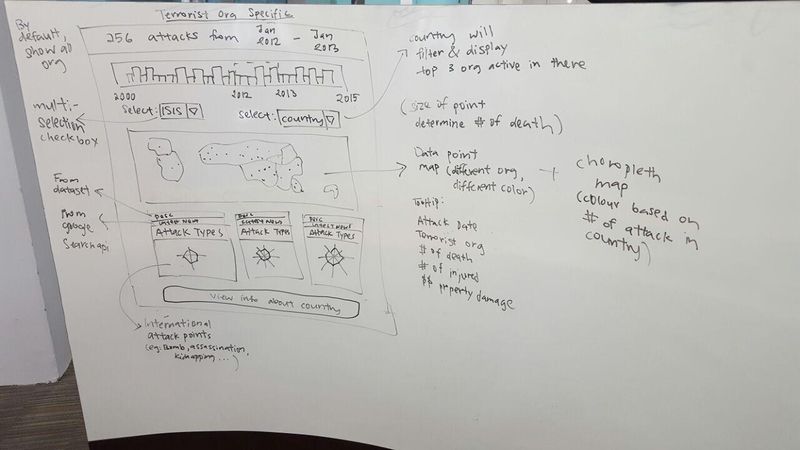 Terrorist Org Specific
By default, show all org
256 attacks from Jan 2012 - Jan 2013
2000 2012 2013 2015
select: ISIS select: country
multi-
selection
checkbox
country will
filter & display
top 3 org active in there
(size of point
determine # of death)
Data point
map (different org,
different color)
+
choropleth
map
(colour based on
# of attack in
country)
Tooltip:
Attack Date
Terrorist org
# of death
# of injured
$$ property damage
From
dataset
From
google
search api
Desc
latest news
Attack Types
Desc
latest news
Attack Types
Desc
latest news
Attack Types
view info about country
International
attack points
(eg: Bomb, assassination,
kidnapping ...)